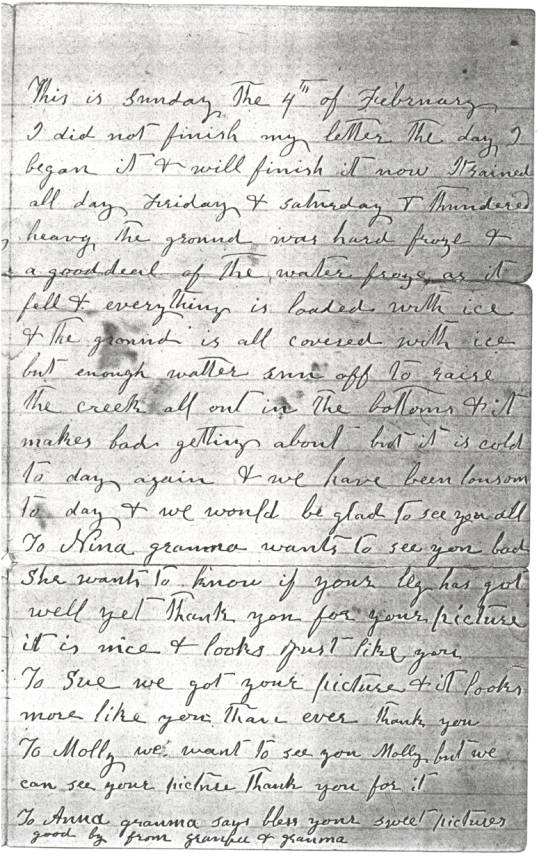 This is Sunday the 4th of February
I did not finish my letter the day I
began it & will finish it now It rained
all day Friday & saturday & thundered
heavy the ground was hard froze &
a good deal of the water froze as it
fell & everything is loaded with ice
& the ground is all covered with ice
but enough watter run off to raise
the creek all out in the bottoms & it
makes bad getting about but it is cold
to day again & we have been lonsom
to day & we would be glad to see you all
To Nina granma wants to see you bad
She wants to know if your leg has got
well yet Thank you for your picture
it is nice & looks just like you
To Sue we got your picture & it looks
more like you than ever thank you
To Molly we want to see you Molly but we
can see your picture Thank you for it
To Anna granma says bless your sweet pictures
good by from granpa & granma